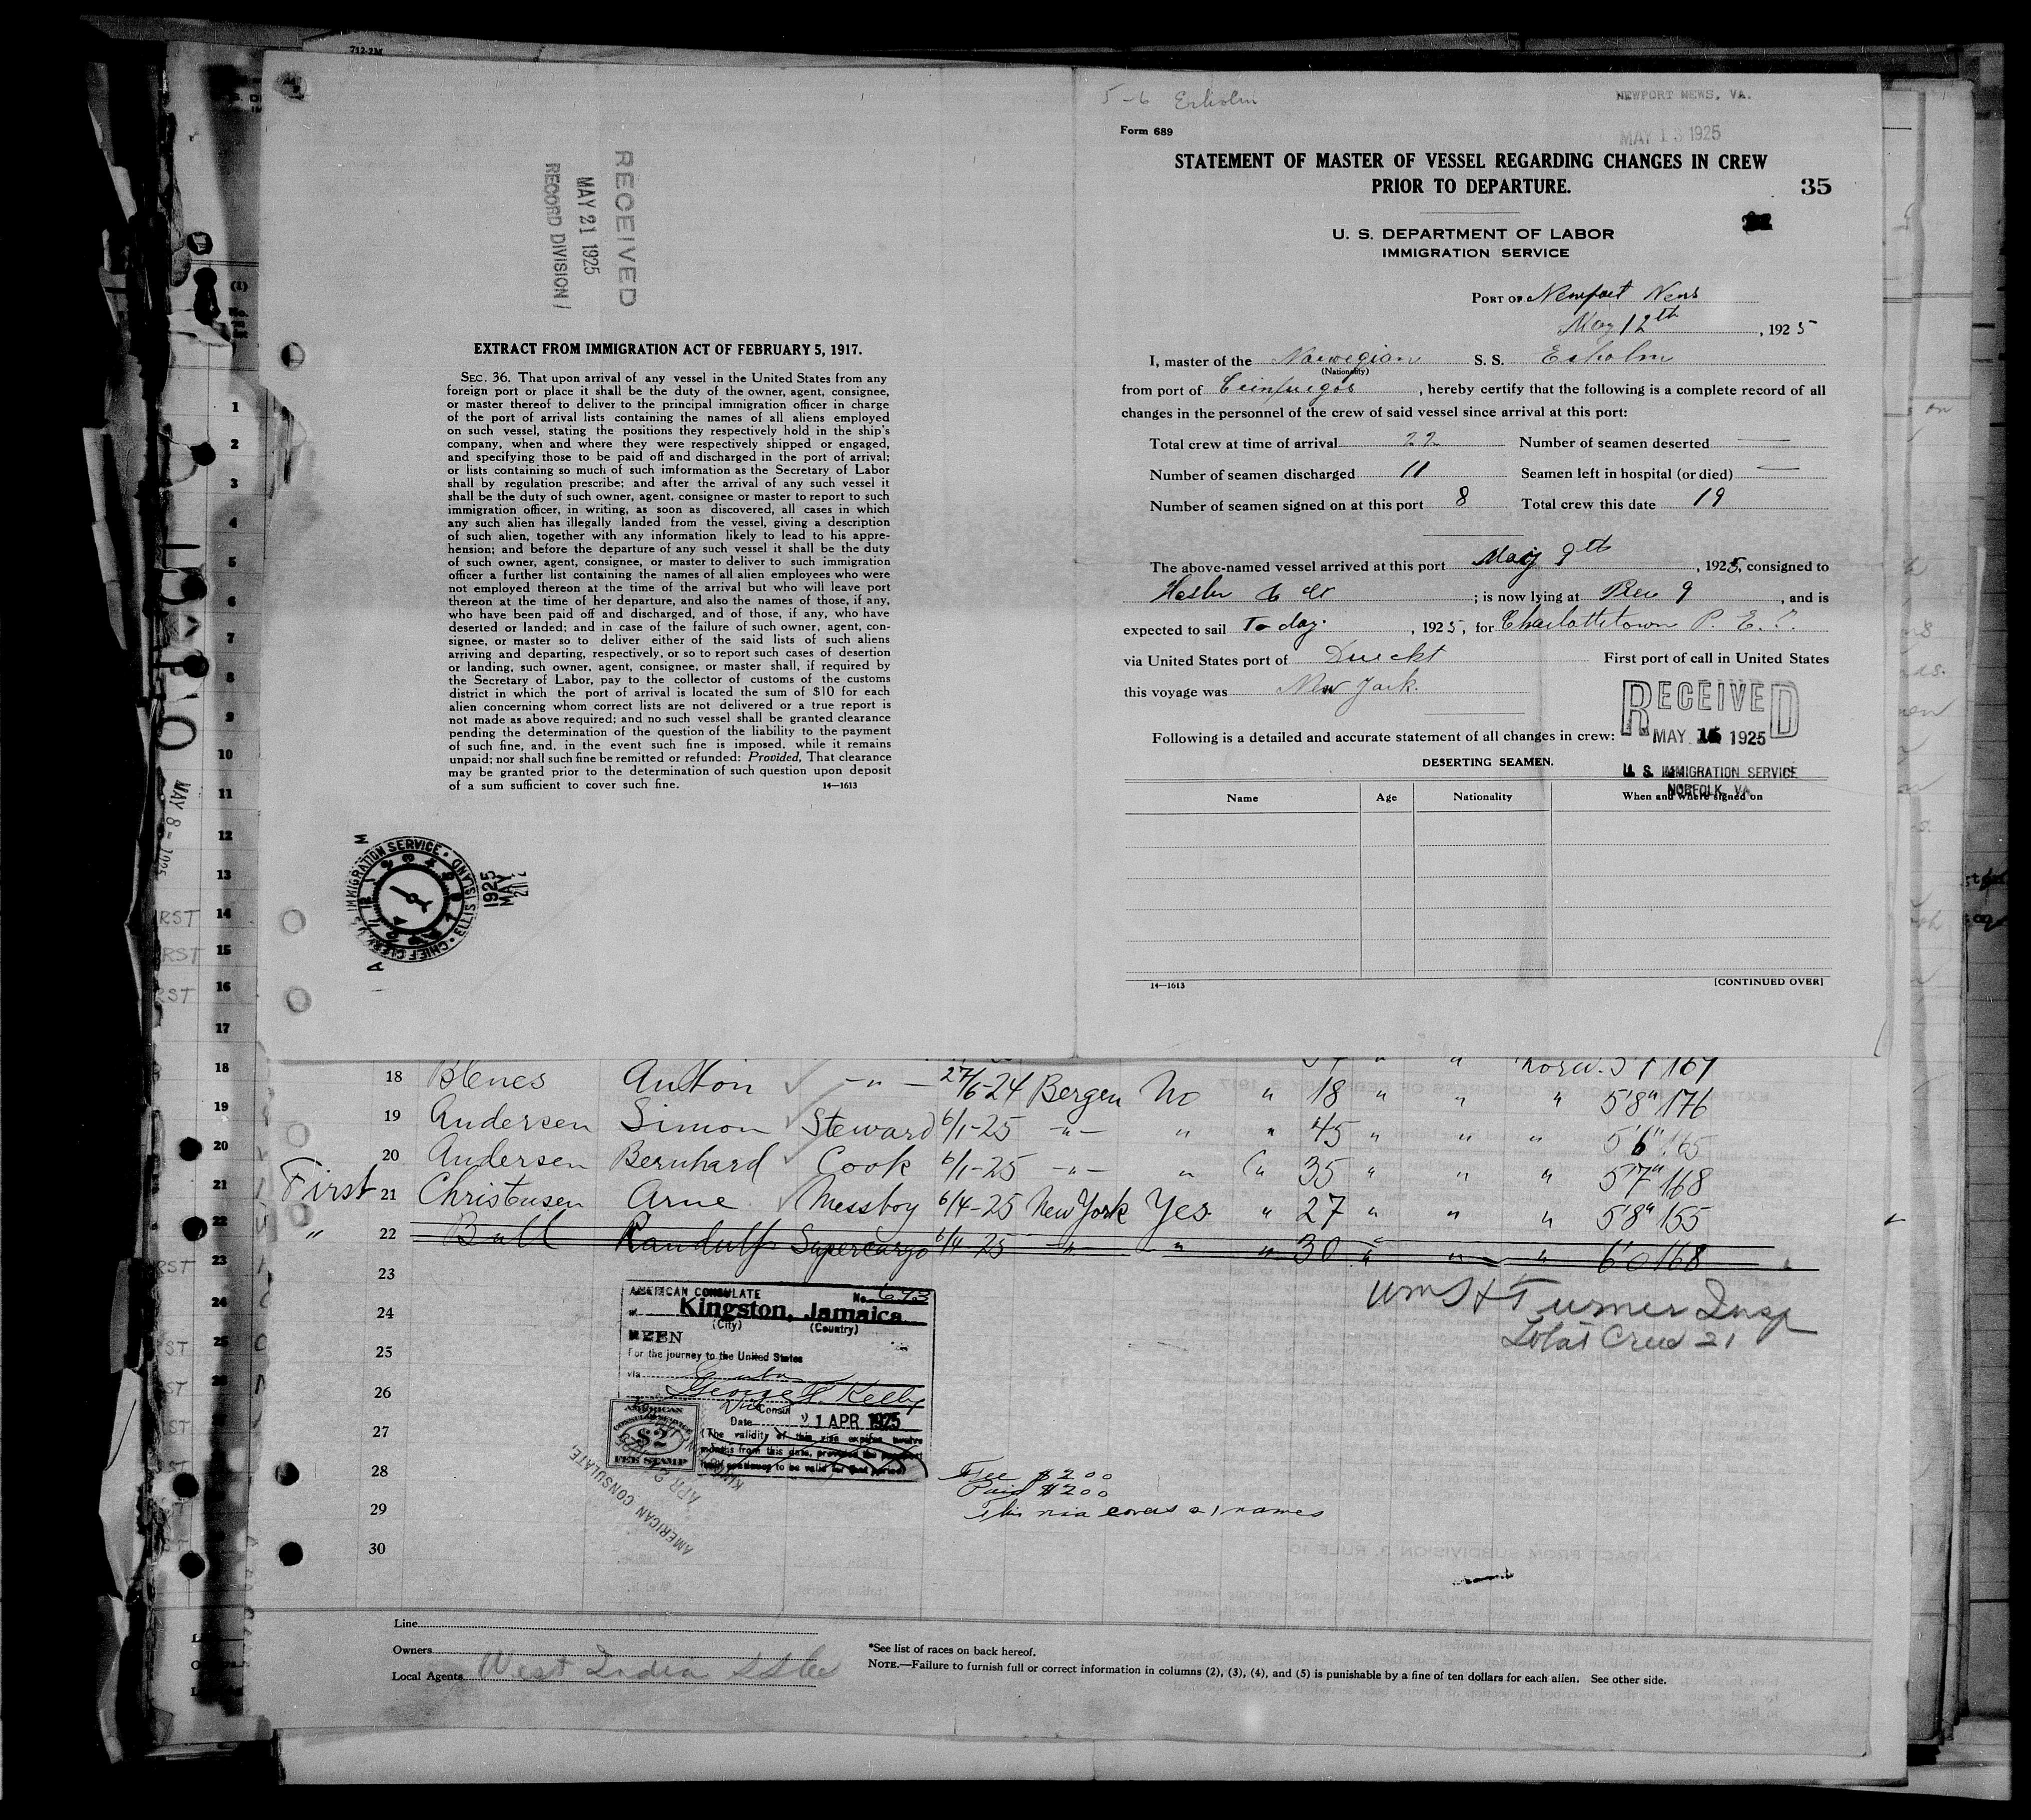 712-2M
RECEIVED
MAY 21 1925
RECORD DIVISION
EXTRACT FROM IMMIGRATION ACT OF FEBRUARY 5, 1917.
SEC. 36. That upon arrival of any vessel in the United States from any
foreign port or place it shall be the duty of the owner, agent, consignee,
or master thereof to deliver to the principal immigration officer in charge
of the port of arrival lists containing the names of all aliens employed
on such vessel, stating the positions they respectively hold in the ship's
company, when and where they were respectively shipped or engaged,
and specifying those to be paid off and discharged in the port of arrival;
or lists containing so much of such imformation as the Secretary of Labor
shall by regulation prescribe; and after the arrival of any such vessel it
shall be the duty of such owner, agent, consignee or master to report to such
immigration officer, in writing, as soon as discovered, all cases in which
any such alien has illegally landed from the vessel, giving a description
of such alien, together with any information likely to lead to his appre-
hension; and before the departure of any such vessel it shall be the duty
of such owner, agent, consignee, or master to deliver to such immigration
officer a further list containing the names of all alien employees who were
not employed thereon at the time of the arrival but who will leave port
thereon at the time of her departure, and also the names of those, if any,
who have been paid off and discharged, and of those, if any, who have
deserted or landed; and in case of the failure of such owner, agent, con-
signee, or master so to deliver either of the said lists of such aliens
arriving and departing, respectively, or so to report such cases of desertion
or landing, such owner, agent, consignee, or master shall, if required by
the Secretary of Labor, pay to the collector of customs of the customs
district in which the port of arrival is located the sum of $10 for each
alien concerning whom correct lists are not delivered or a true report is
not made as above required; and no such vessel shall be granted clearance
pending the determination of the question of the liability to the payment
of such fine, and, in the event such fine is imposed, while it remains
unpaid; nor shall such fine be remitted or refunded: Provided, That clearance
may be granted prior to the determination of such question upon deposit
of a sum sufficient to cover such fine. 14—1613
IMMIGRATION SERVICE · ELLIS ISLAND · CHIEF CLERK
1925 MAY
5-6 Esholm
NEWPORT NEWS, VA.
MAY 13 1925
Form 689
STATEMENT OF MASTER OF VESSEL REGARDING CHANGES IN CREW
PRIOR TO DEPARTURE.
35
U. S. DEPARTMENT OF LABOR
IMMIGRATION SERVICE
PORT OF Newport News
May 12th, 1925
I, master of the Norwegian S. S. Esholm
(Nationality)
from port of Ceinfuegos, hereby certify that the following is a complete record of all
changes in the personnel of the crew of said vessel since arrival at this port:
Total crew at time of arrival 22 Number of seamen deserted —
Number of seamen discharged 11 Seamen left in hospital (or died) —
Number of seamen signed on at this port 8 Total crew this date 19
The above-named vessel arrived at this port May 9th, 1925, consigned to
Hasler & Co ; is now lying at Pier 9, and is
expected to sail To day., 1925, for Charlottetown P. E. I.
via United States port of Direckt First port of call in United States
this voyage was New York.
RECEIVED
MAY 1925
U. S. IMMIGRATION SERVICE
NORFOLK, VA
Following is a detailed and accurate statement of all changes in crew:
DESERTING SEAMEN.
Name Age Nationality When and where signed on
14—1613 [CONTINUED OVER]
18 Blenes Anton —"— 27/6-24 Bergen No " 18 " " " 5'8" 176
19 Andersen Simon Steward 6/1-25 —"— " " 45 " " " 5'6" 165
20 Andersen Bernhard Cook 6/1-25 —"— " " 35 " " " 5'7" 168
First 21 Christensen Arne Messboy 6/4-25 New York Yes " 27 " " " 5'8" 155
" 22 Bull Randulf Supercargo 6/4-25 " " " 30 " " " 6'0 168
23
24
25
26
27
28
29
30
Wm S H Turner Insp
Total Crew 21
AMERICAN CONSULATE No. 673
at Kingston, Jamaica
(City) (Country)
SEEN
For the journey to the United States
via Cuba
George R. Kelly
Vice Consul
Date 21 APR 1925
(The validity of this visa expires twelve
months from this date, provided the passport
continues to be valid for that period)
AMERICAN
CONSULAR SERVICE
$2
FEE STAMP
AMERICAN CONSULATE,
Fee $2.00
Paid $2.00
This visa covers 21 names
Line
Owners
Local Agents West India SS Co
*See list of races on back hereof.
NOTE.—Failure to furnish full or correct information in columns (2), (3), (4), and (5) is punishable by a fine of ten dollars for each alien. See other side.
MAY 8 - 1925